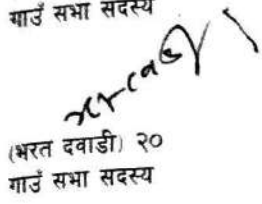 गाउँ सभा सदस्य
(भरत दवाडी) २०
गाउँ सभा सदस्य